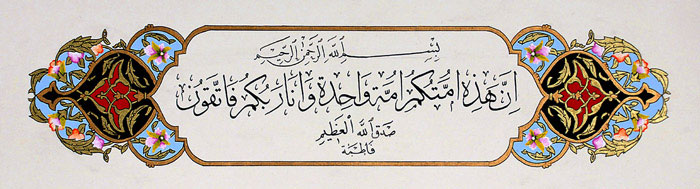 بِسْمِ اللّٰهِ الرَّحْمٰنِ الرَّحِيمِ
اِنَّ هٰذِهِ اُمَّتُكُمْ اُمَّةً وَاحِدَةً وَاَنَا رَبُّكُمْ فَاتَّقُونِ
صَدَقَ اللّٰهُ الْعَظِيمُ
فَاطِمَة